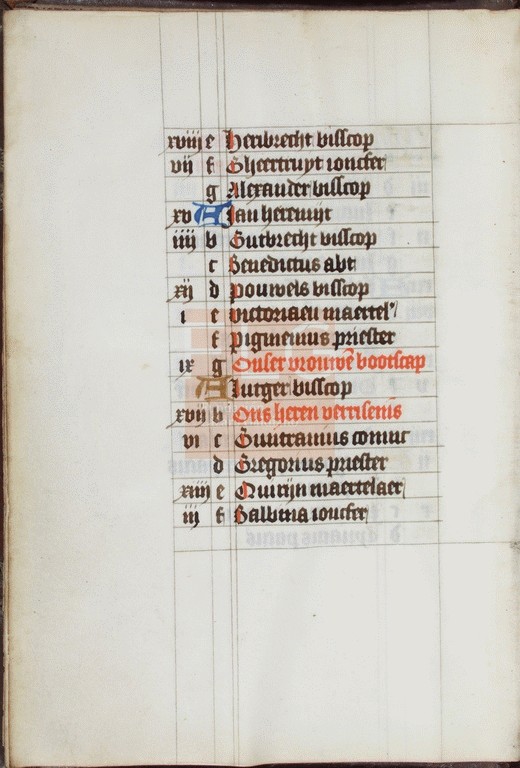 xviij e Heribrecht bisscop
vij f Gheertruyt ioncfer
g Alexander bisscop
xv A Jan heremijt
iiij b Gutbrecht bisscop
c Benedictus abt
xij d pouwels bisscop
i e victoriaen maertel'
f pigmenius priester
ix g Onser vrouwē bootscap
A Lutger bisscop
xvij b Ons heren verrisenis
vi c Guntramus coninc
d Gregorius priester
xiiij e Quirijn maertelaer
iij f Balbina ioncfer